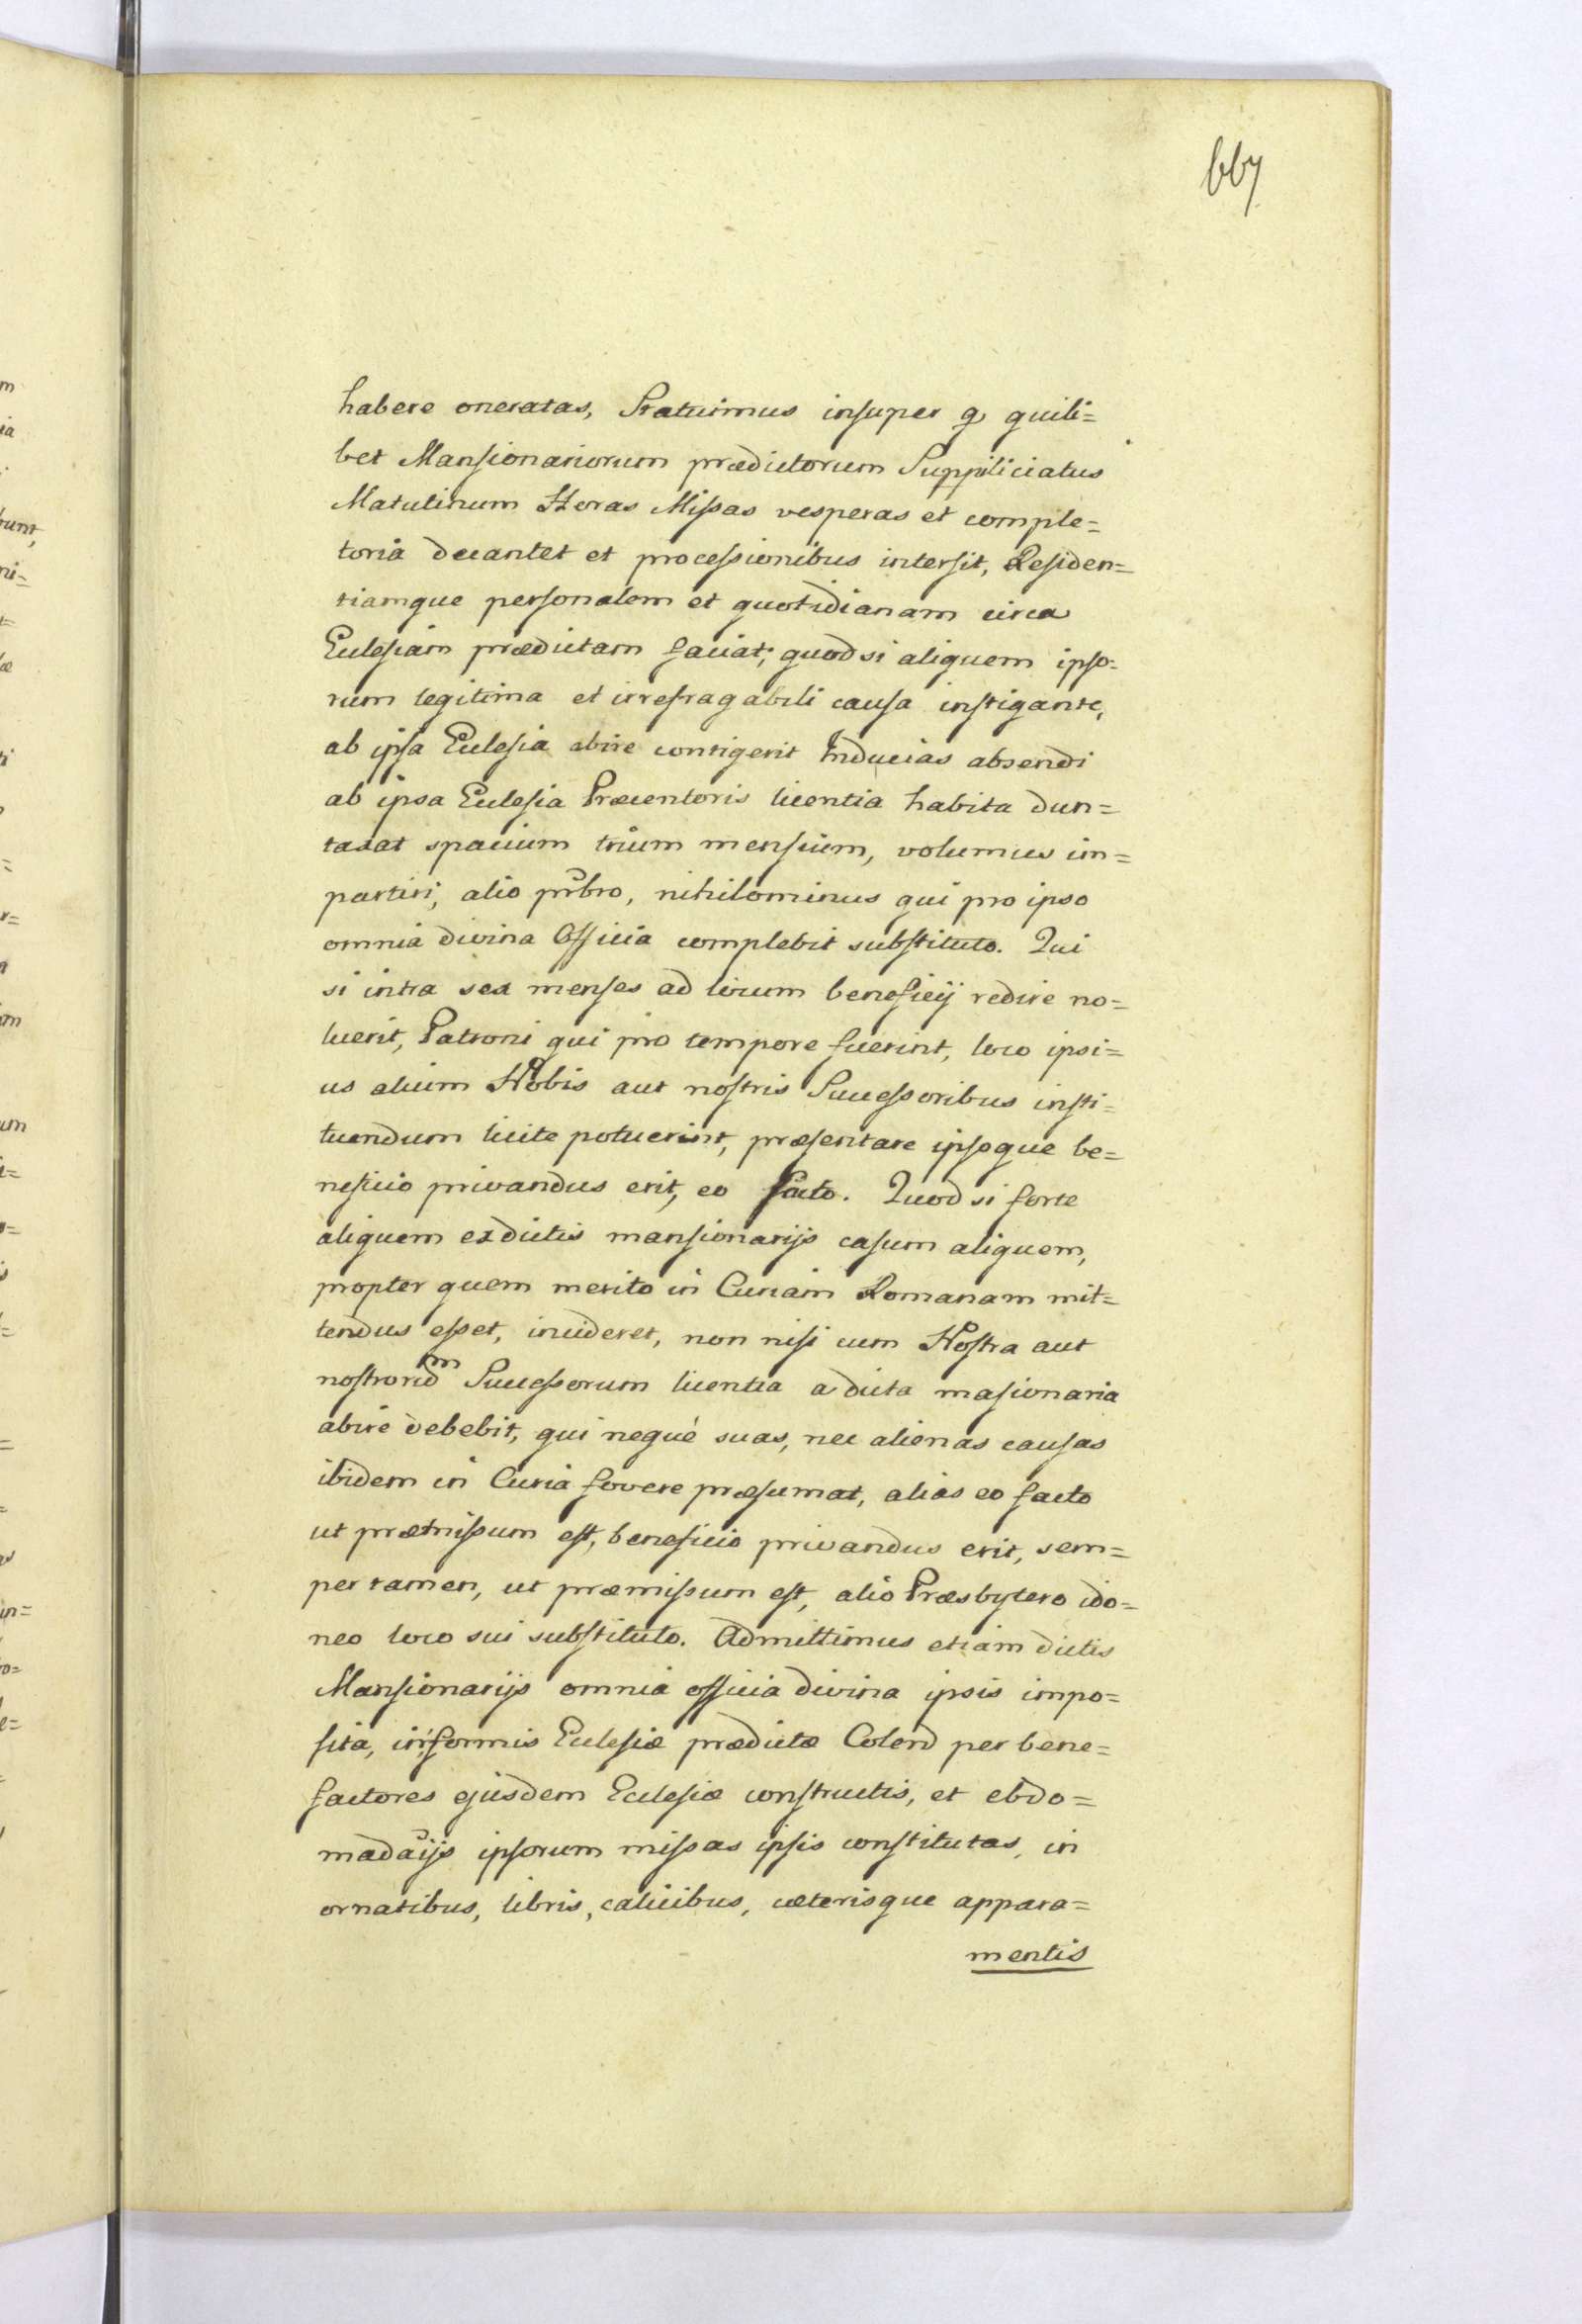 667
habere oneratas, Statuimus insuper q quili=
bet Mansionariorum prædictorum Suppiliciatus
Matutinum Horas Missas vesperas et comple=
toria decantet et processionibus intersit, Residen=
tiamque personalem et quotidianam circa
Eclesiam prædictam faciat; quod si aliquem ipso=
rum legitima et irrefragabili causa instigante,
ab ipsa Eclesia abire contigerit Inducias absendi
ab ipsa Eclesia Præcentoris licentia habita dun=
taxat spacium trium mensium, volumus im=
partiri, alio prbro, nihilominus qui pro ipso
omnia divina Officia complebit substituto. Qui
si intra sex menses ad locum beneficij redire no=
luerit, Patroni qui pro tempore fuerint, loco ipsi=
us alium Nobis aut nostris Successoribus insti=
tuendum licite potuerint, præsentare ipsoque be=
neficio privandus erit, eo facto. Quod si forte
aliquem ex dictis mansionarijs casum aliquem,
propter quem merito in Curiam Romanam mit=
tendus esset, incideret, non nisi cum Nostra aut
nostrorum Successorum licentia a dicta masionaria
abire debebit, qui neque suas, nec alienas causas
ibidem in Curia fovere præsumat, alias eo facto
ut præmissum est, beneficio privandus erit, sem=
per tamen, ut præmissum est, alio Præsbytero ido=
neo loco sui substituto. Admittimus etiam dictis
Mansionarijs omnia officia divina ipsis impo=
sita, in formis Eclesiæ prædictæ Colend per bene=
factores ejusdem Eclesiæ constructis, et ebdo=
madaijs ipsorum missas ipsis constitutas, in
ornatibus, libris, calicibus, cæterisque appara=
mentis